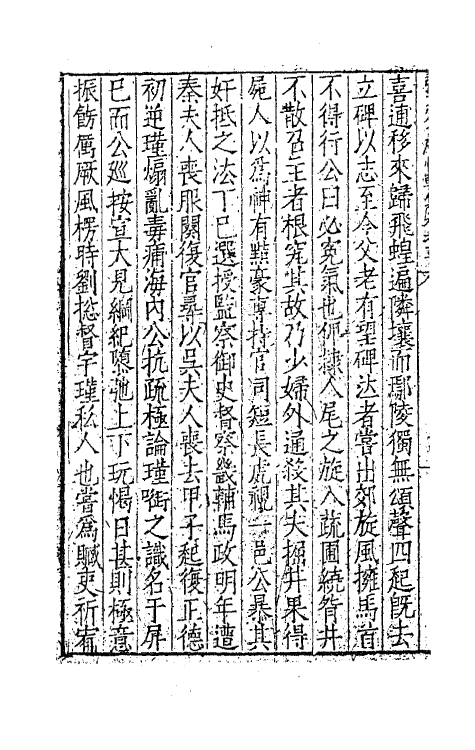 喜逋移來歸飛蝗遍隣壤而鄢陵獨無頌聲四起既去
立碑以志至今父老有望碑泣者嘗出郊旋風擁馬首
不得行公曰必冤氣也佩隷人尾之旋入蔬圃繞智井
不散召主者根究其故乃少婦外通殺其夫掘井果得
屍人以為神有黠豪專持官司短長虎視一邑公暴其
奸抵之法丁巳選授監察御史督察畿輔馬政明年遭
秦夫人喪服闋復官尋以吳夫人喪去甲子起復正德
初逆瑾煽亂毒痡海内公抗疏極論瑾銜之識名于屏
已而公巡按宣大見綱紀隳弛上下玩愒日甚則極意
振飭厲厥風楞時劉揔督宇瑾私人也嘗為贓吏祈宥